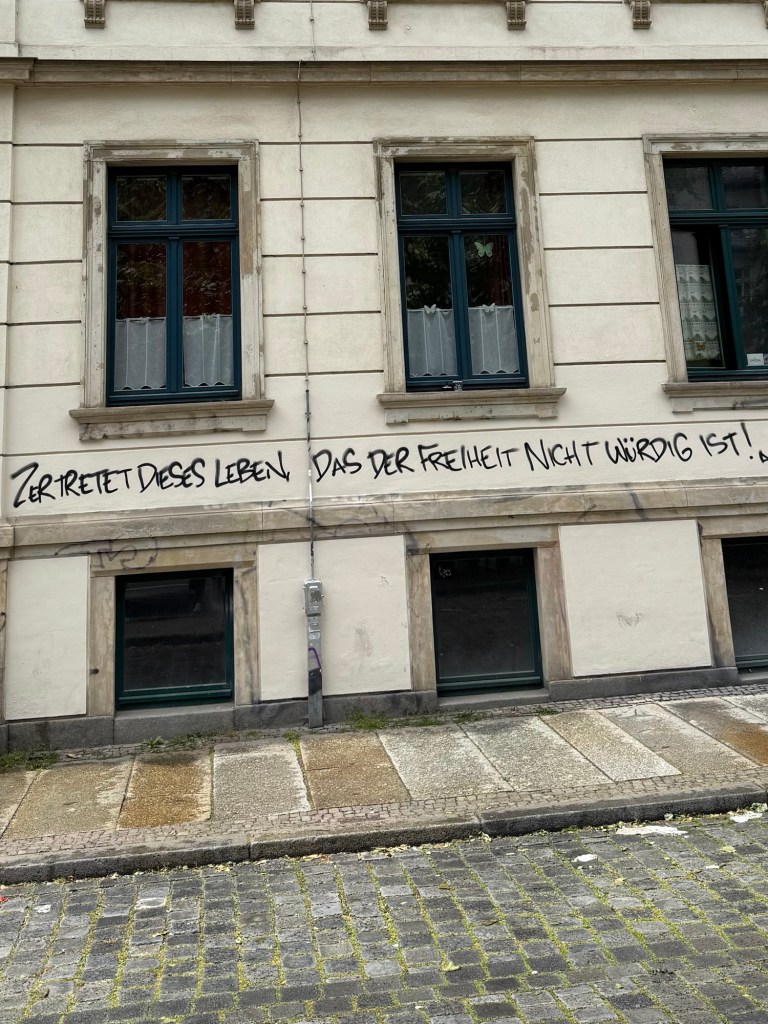 ZERTRETET DIESES LEBEN, DAS DER FREIHEIT NICHT WÜRDIG IST!